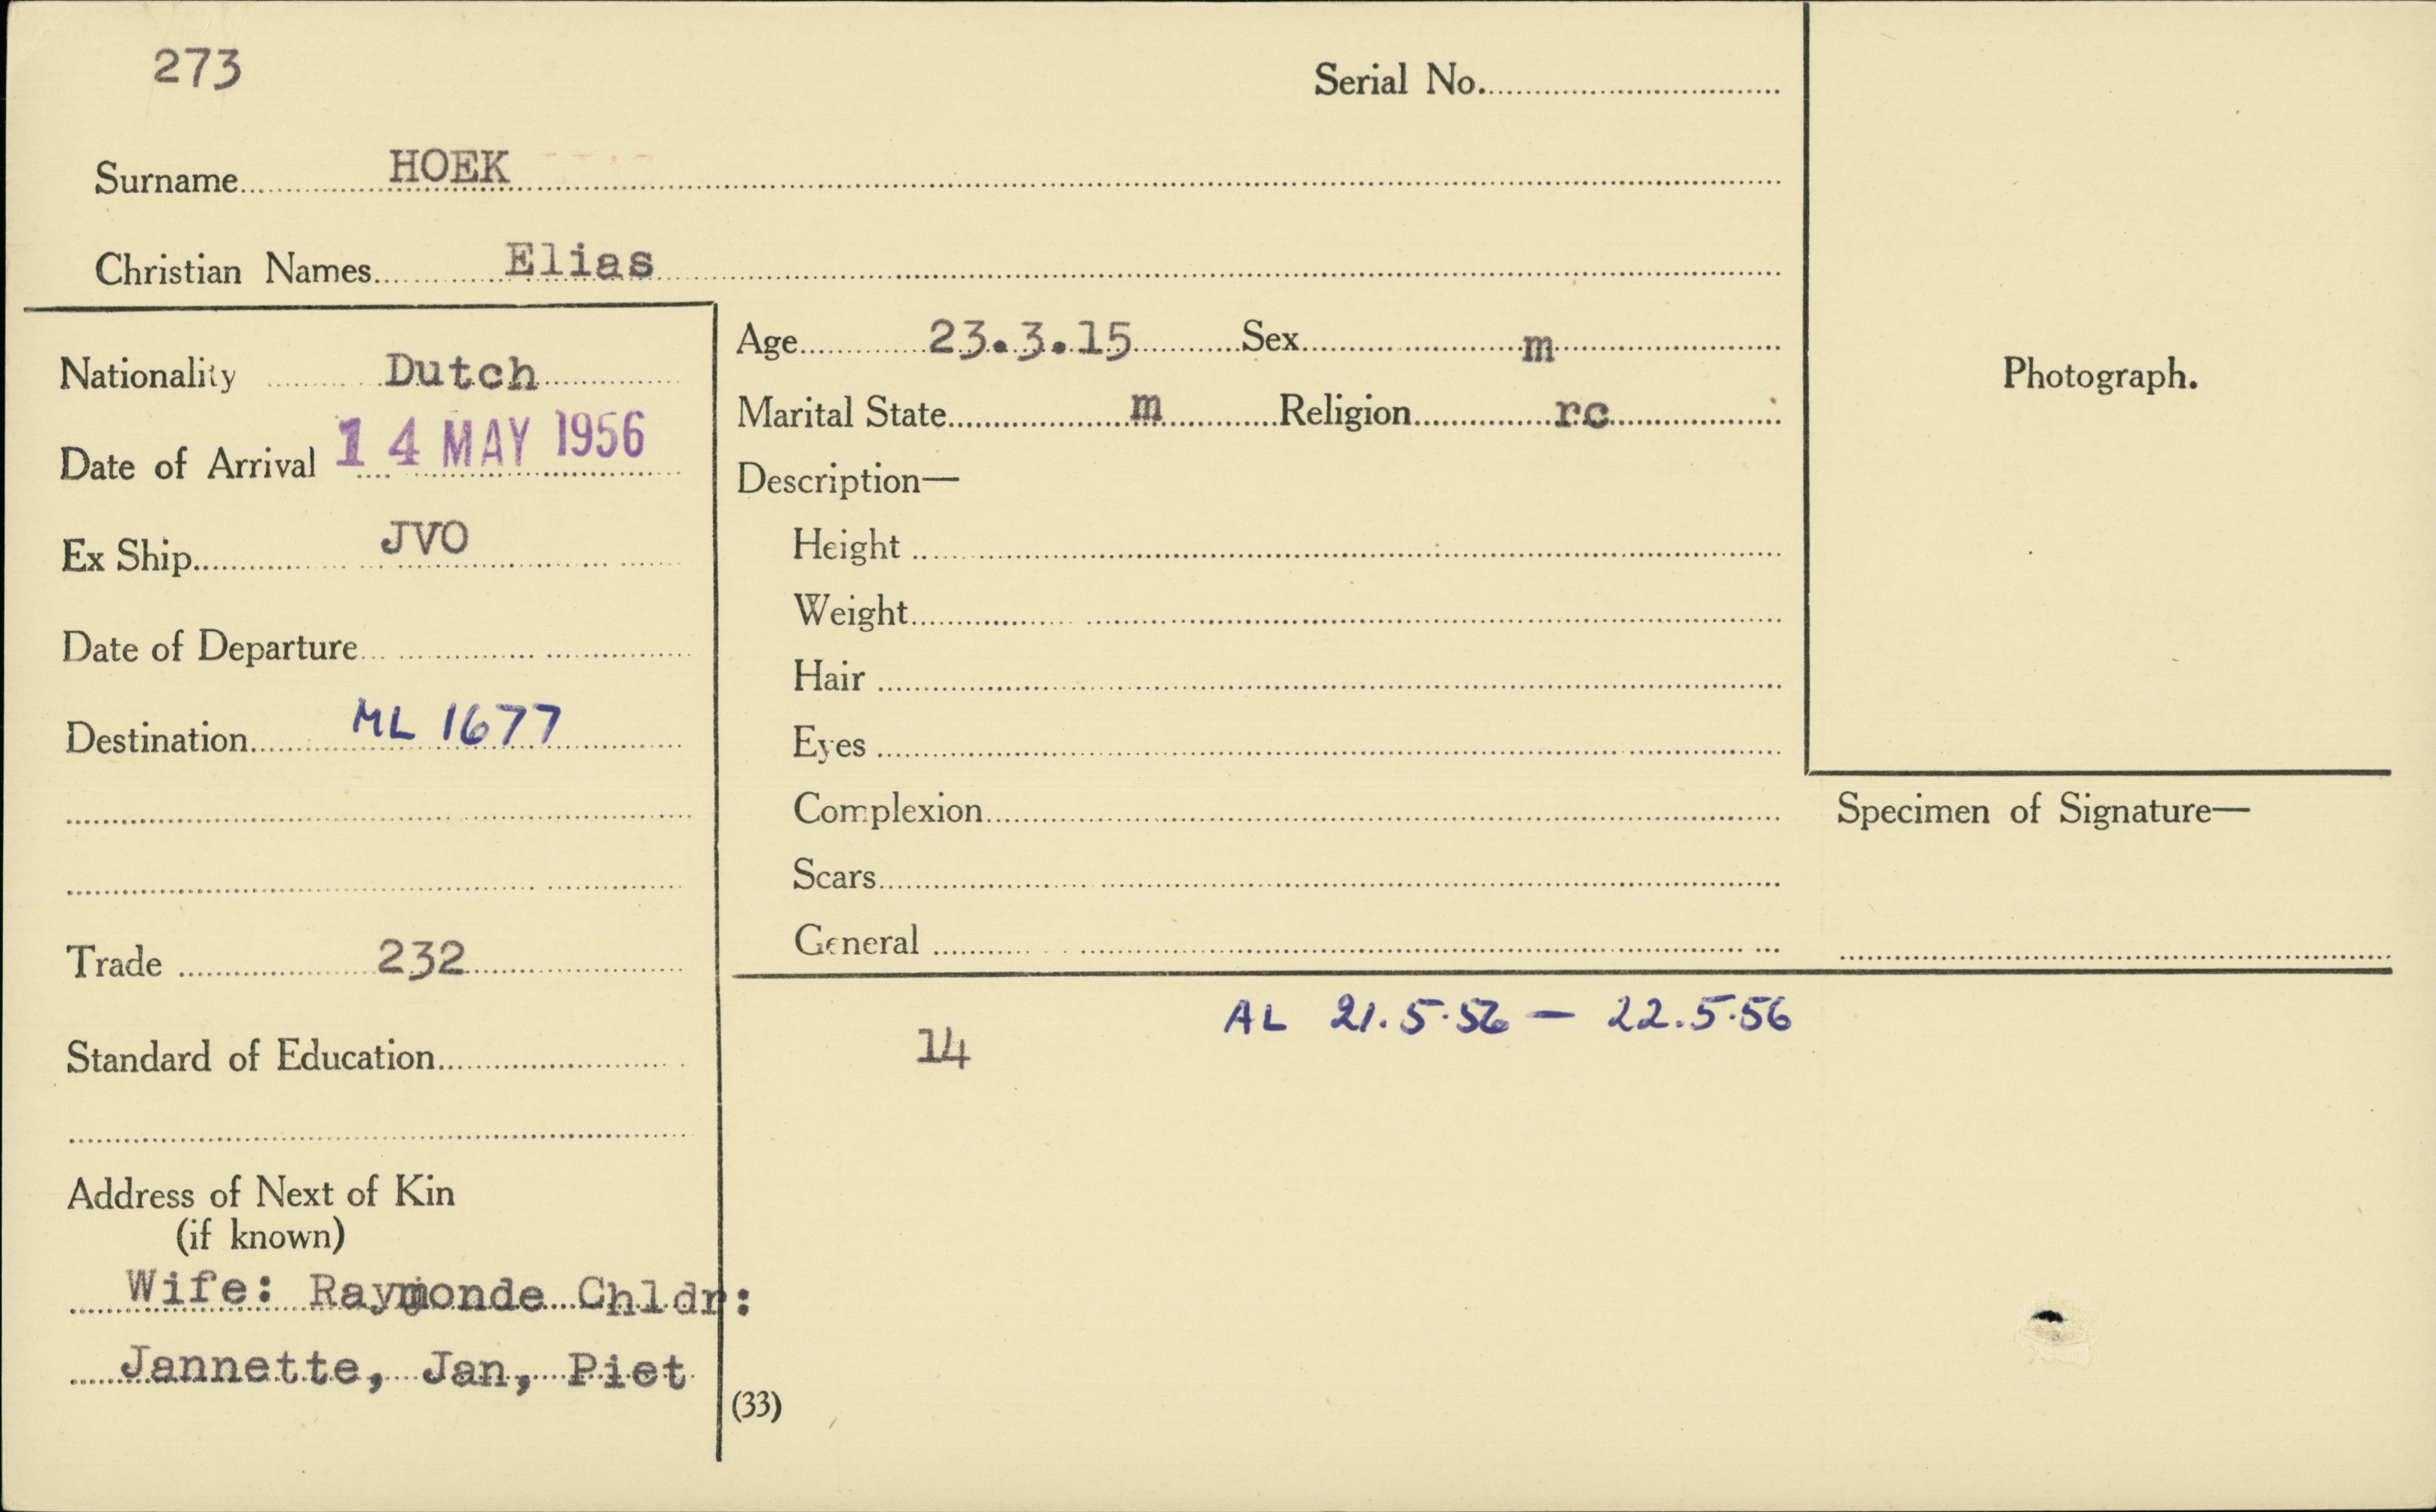 273
Serial No.
Surname HOEK
Christian Names Elias
Nationality Dutch
Date of Arrival 14 MAY 1956
Ex Ship JVO
Date of Departure
Destination ML 1677
Trade 232
Standard of Education
Address of Next of Kin
(if known)
Wife: Raymonde Chldr:
Jannette, Jan, Piet
Age 23.3.15 Sex m
Marital State m Religion rc
Description—
Height
Weight
Hair
Eyes
Complexion
Scars
General
Photograph.
Specimen of Signature—
AL 21.5.56 — 22.5.56
14
(33)